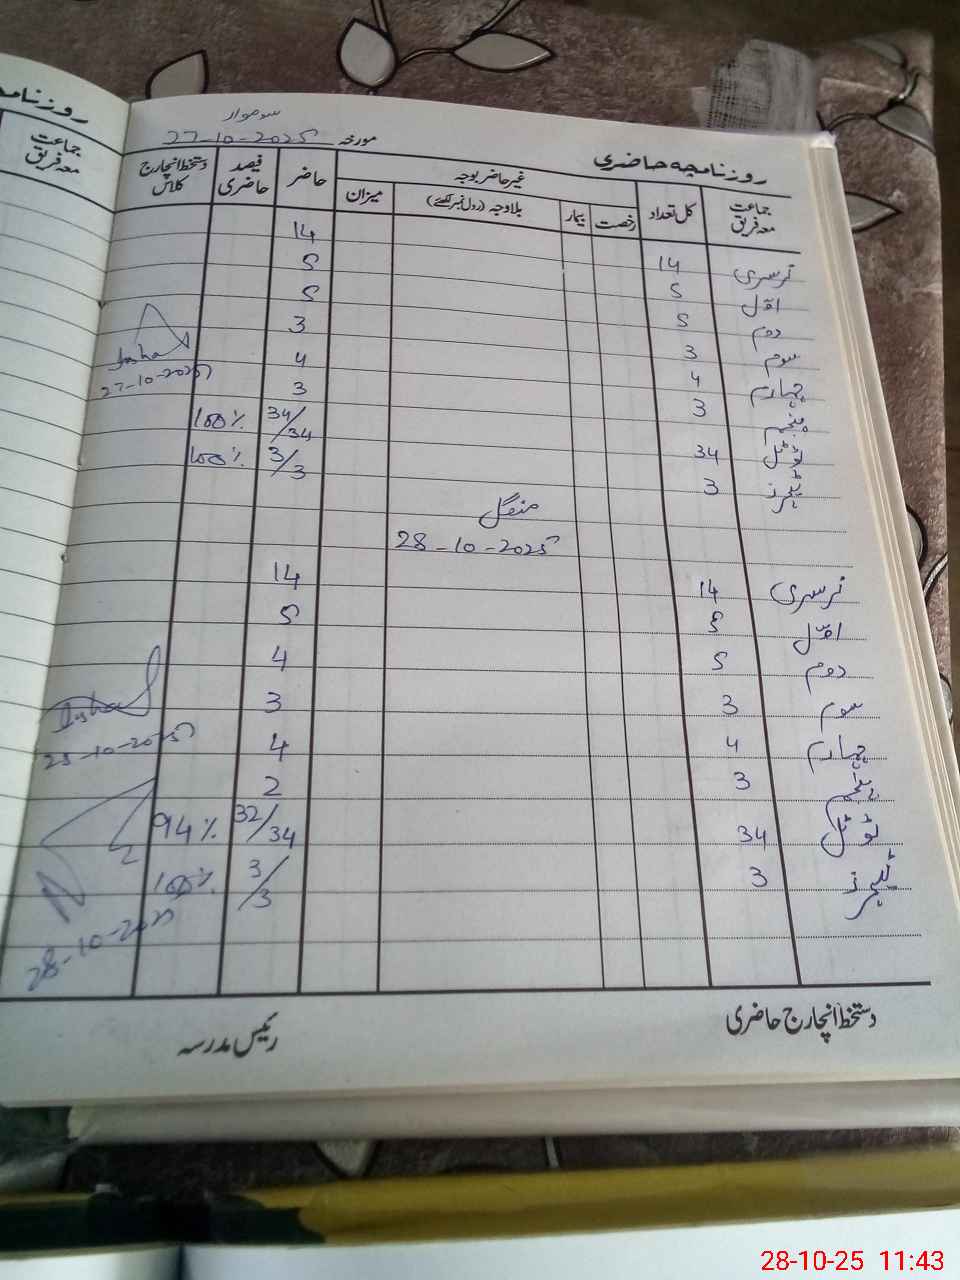 روزنامچہ
جماعت
معہ فریق
روزنامچہ حاضری
سوموار
مورخہ 27-10-2025
جماعت معہ فریق کل تعداد غیر حاضر بوجہ حاضر فیصد حاضری دستخط انچارج کلاس
رخصت بیمار بلاوجہ (رول نمبر لکھئے) میزان
نرسری 14 14
اوّل 5 5
دوم 5 5
سوم 3 3
چہارم 4 4
پنجم 3 3
ٹوٹل 34 34/34 100%
ٹیچرز 3 3/3 100%
27-10-2025
منگل
28-10-2025
نرسری 14 14
اوّل 5 5
دوم 5 4
سوم 3 3
چہارم 4 4
پنجم 3 2
ٹوٹل 34 32/34 94%
ٹیچرز 3 3/3 100%
28-10-2025
28-10-2025
دستخط انچارج حاضری
رئیس مدرسہ
28-10-25 11:43